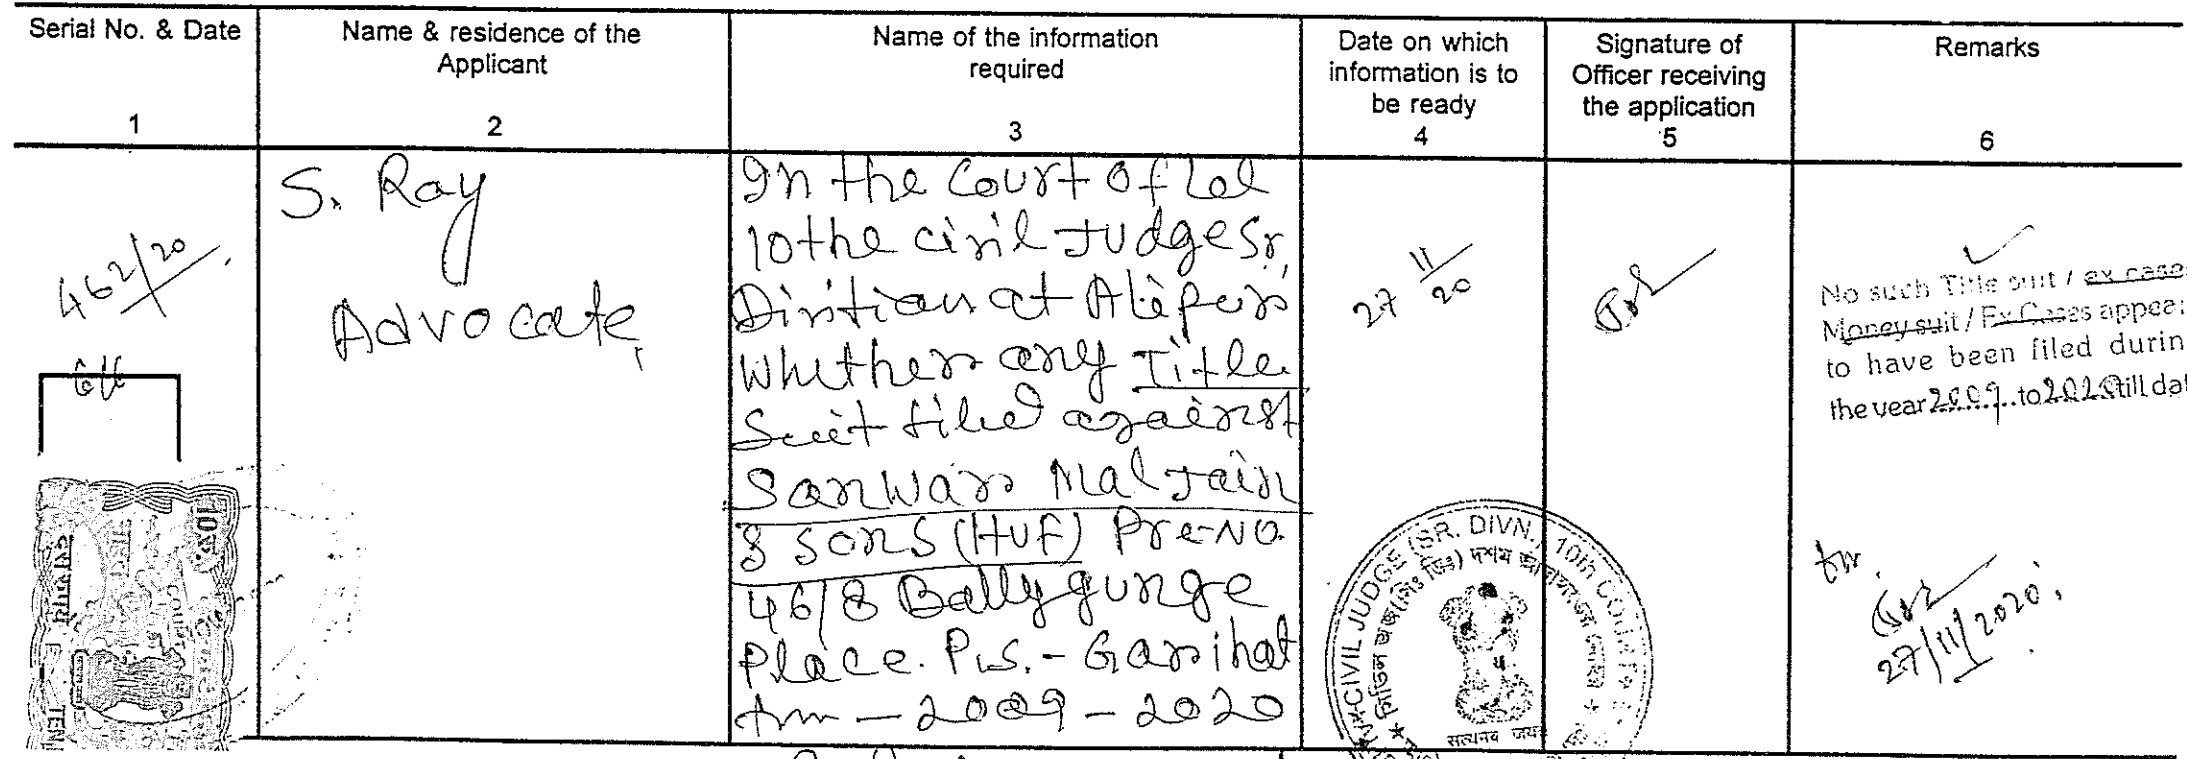 Serial No. & Date
1
Name & residence of the
Applicant
2
Name of the information
required
3
Date on which
information is to
be ready
4
Signature of
Officer receiving
the application
5
Remarks
6
462/20
S. Ray
Advocate,
In the Court of Ld
10the civil Judge Sr,
Divition at Alipur
Whether any Title
Suit filed against
Sanwar Mal Jain
& Sons (HUF) Pre-No.
46/8 Ballygunge
Place. P.S. - Garihat
2009 - 2020
27 11/20
No such Title suit / ex case
Money suit / Ex Cases appear
to have been filed durin
the year 2009 to 2020 till dat
27/11/2020
CIVIL JUDGE (SR. DIVN.) 10th COURT
सत्यमेव जयते
10रु.
TEN